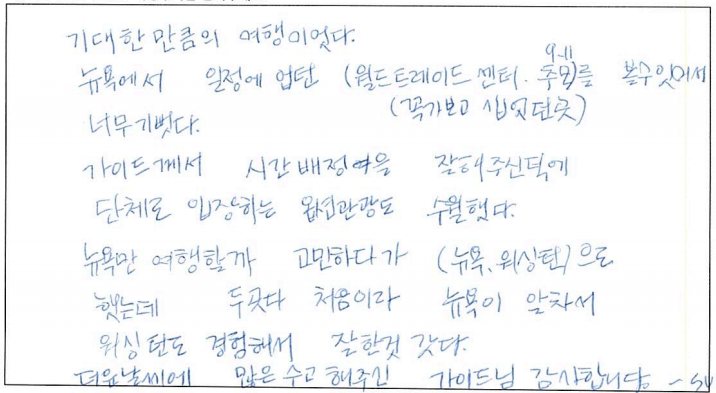 기대한 만큼의 여행이었다.
뉴욕에서 일정에 업던 (월드트레이드 센터. 9-11 추모)를 볼수있어서
(꼭가보고 싶었던곳)
너무기뻣다.
가이드께서 시간배정여을 잘해주신덕에
단체로 입장하는 옵션관광도 수월했다.
뉴욕만 여행할까 고민하다가 (뉴욕, 워싱턴)으로
했는데 두곳다 처음이라 뉴욕이 알차서
워싱턴도 경험해서 잘한것 갓다.
더운날씨에 많은 수고 해주신 가이드님 감사합니다